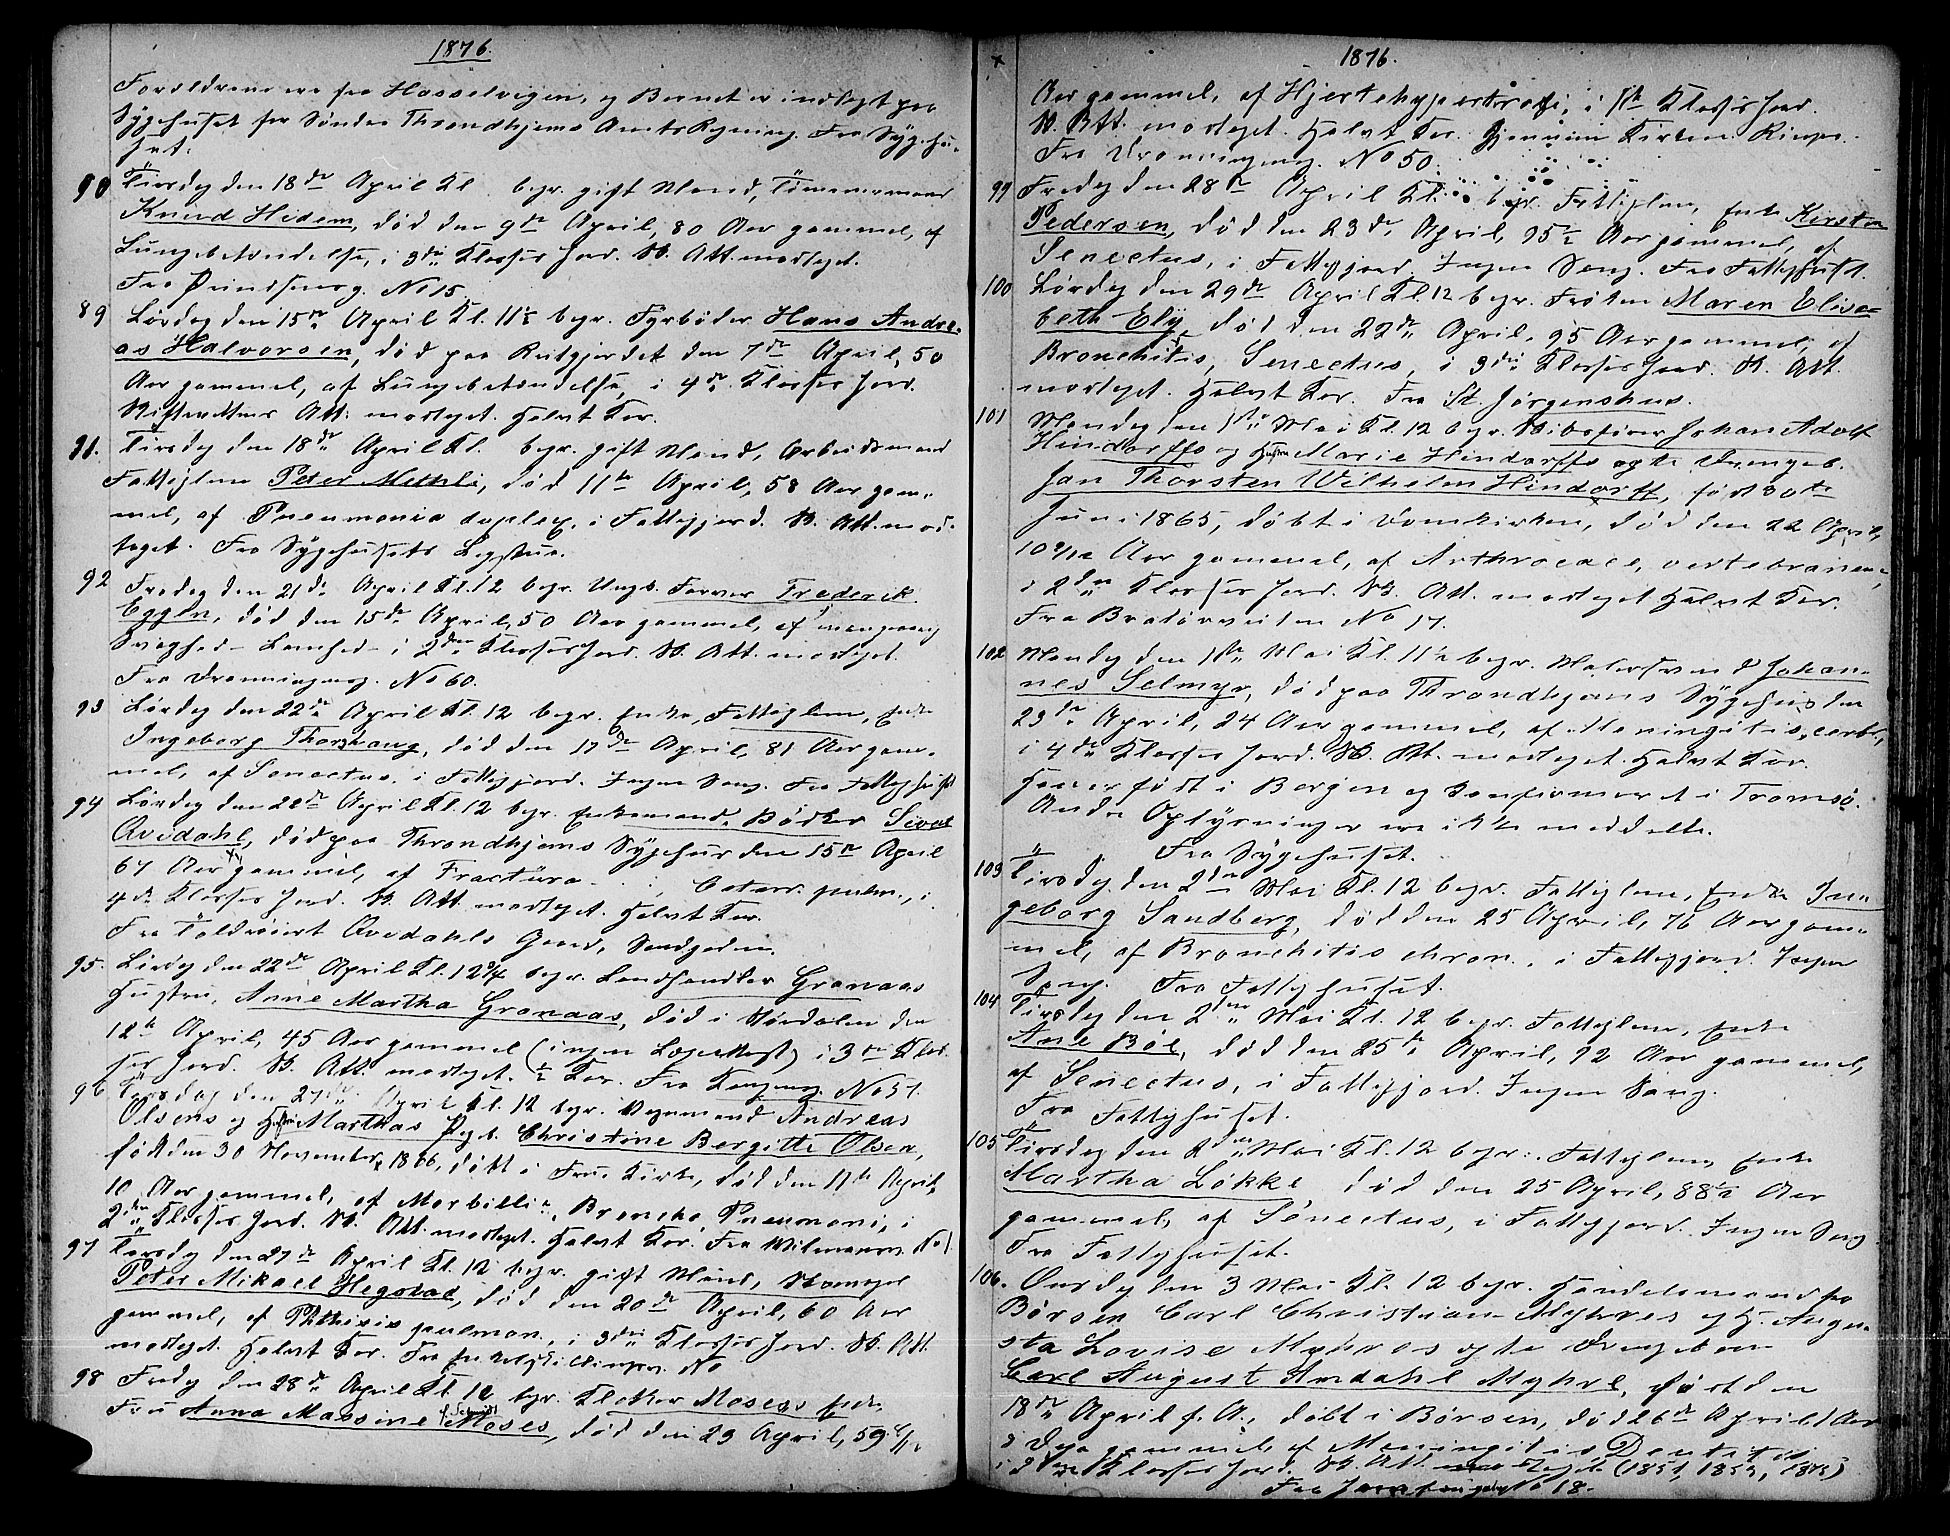 1876.
Forældrene ere fra Hasselvigen, og Barnet er indlagt paa
Sygehuset for Søndre Throndhjems Amts Regning. Fra Sygehu-
set.
90 Tirsdag den 18de April Kl. begr. gift Mand, Tömmermand
Knud Hidem, død den 9de April, 80 Aar gammel, af
Lungebetændelse, i 3die Klasses Jord. Sk. Att. modtaget.
Fra Prindsensg. No 15.
89 Lørdag den 15de April Kl. 11½ begr. Fyrbøder Hans Andre-
as Halvorsen, død paa Reitgjerdet den 7de April, 50
Aar gammel, af Lungebetændelse, i 4de Klasses Jord.
Skifterettens Att. modtaget. Halvt Kor.
91. Tirsdag den 18de April Kl. begr. gift Mand, Arbeidsmand
Fattiglem Peter Methli, død 11te April, 58 Aar gam-
mel, af Pneumonia duplex, i Fattigjord. Sk. Att. mod-
taget. Fra Sygehusets Ligstue.
92 Fredag den 21de April Kl. 12 begr. Ungk. Farver Frederik
Eggen, død den 15de April, 50 Aar gammel, af mangeaarig
Svaghed - Lamhed - i 2den Klasses Jord. Sk. Att. modtaget.
Fra Dronningensg. No 60.
93 Lørdag den 22de April Kl. 12 begr. Enke, Fattiglem, Enke
Ingeborg Thorshaug, død den 17de April, 81 Aar gam-
mel, af Senectus, i Fattigjord. Ingen Sang. Fra Fattighuset
94 Lørdag den 22de April Kl. 12 begr. Enkemand, Bødker Sivert
Qvedahl, død paa Throndhjems Sygehus den 15de April
67 Aar gammel, af Fractura, Catarr. pulm., i
4de Klasses Jord. Sk. Att. modtaget. Halvt Kor.
Fra Toldvisitør Qvedahls Gaard, Sandgaden.
95. Lørdag den 22de April Kl. 12¾ begr. Landhandler Granaas
Hustru, Anne Martha Granaas, død i Værdalen den
12te April, 45 Aar gammel (ingen Lægeattest) i 3die Klas-
ses Jord. Sk. Att. modtaget. ½ Kor. Fra Kongensg. No 51.
96 Torsdag den 27de April Kl. 12 begr. Vognmand Andreas
Olsens og Hustru Marthas Pigeb. Christine Bergitte Olsen,
født den 30 November 1866, døbt i Frue Kirke, død den 17de April,
10 Aar gammel, af Morbilli, Broncho Pneumoni, i
2den Klasses Jord. Sk. Att. modtaget. Halvt Kor. Fra Wilmannsv. No 1.
97 Torsdag den 27de April Kl. 12 begr. gift Mand,
Peter Mikael Hegstad, død den 20de April, 60 Aar
gammel, af Phthisis pulmon., i 3die Klasses Jord. Sk. Att.
modtaget. Halvt Kor. Fra No
98 Fredag den 28de April Kl. 12 begr. Klokker Moses's Enke
Fru Anna Massine f. Schmidt Moses, død den 23 April, 59
1876.
Aar gammel, af Hjertehypertrofi, i 1ste Klasses Jord.
Sk. Att. modtaget. Halvt Kor. Gjennem Kirken. Ringn.
Fra Dronningensg. No 50.
99 Fredag den 28de April Kl. begr. Fattiglem, Enke Kirsten
Pedersen, død den 23de April, 75½ Aar gammel, af
Senectus, i Fattigjord. Ingen Sang. Fra Fattighuset.
100 Lørdag den 29de April Kl. 12 begr. Frøken Maren Elisa-
beth Ely, død den 22de April, 95 Aar gammel, af
Bronchitis, Senectus, i 3die Klasses Jord. Sk. Att.
modtaget. Halvt Kor. Fra St. Jørgenshus.
101 Mandag den 1ste Mai Kl. 12 begr. Skibsfører Johan Adolf
Hindorffs og Hustru Marie Hindorffs ægte Drengeb.
Jan Thorsten Wilhelm Hindorff, født 30te
Juni 1865, døbt i Domkirken, død den 22 April,
10 9/12 Aar gammel, af Arthrocace, vertebrarum,
i 2den Klasses Jord. Sk. Att. modtaget. Halvt Kor.
Fra Bratørveiten No 17.
102 Mandag den 1ste Mai Kl. 11½ begr. Malersvend Johan-
nes Selmyr, død paa Throndhjems Sygehus den
23de April, 24 Aar gammel, af Meningitis, cerbr.,
i 4de Klasses Jord. Sk. Att. modtaget. Halvt Kor.
Han er født i Bergen og konfirmeret i Tromsø.
Andre Oplysninger ere ikke meddelte.
Fra Sygehuset.
103 Tirsdag den 2den Mai Kl. 12 begr. Fattiglem, Enke In-
geborg Sandberg, død den 25 April, 76 Aar gam-
mel, af Bronchitis chron., i Fattigjord. Ingen
Sang. Fra Fattighuset.
104 Tirsdag den 2den Mai Kl. 12 begr. Fattiglem, Enke
Ane Böe, død den 25te April, 92 Aar gammel,
af Senectus, i Fattigjord. Ingen Sang.
Fra Fattighuset.
105 Tirsdag den 2den Mai Kl. 12 begr. Fattiglem, Enke
Martha Løkke, død den 25 April, 88½ Aar
gammel, af Senectus, i Fattigjord. Ingen Sang
Fra Fattighuset.
106. Onsdag den 3 Mai Kl. 12 begr. Handelsmand fra
Børsen Carl Christian Myhres og H. Augu-
sta Lovise Myhres ægte Drengebarn
Carl August Andahl Myhre, født den
18de April f. A., døbt i Børsen, død 26de April, 1 Aar
8 Dage gammel, af Meningitis, Dentition
i 2den Klasses Jord. Sk. Att. modtaget
Fra No 18.